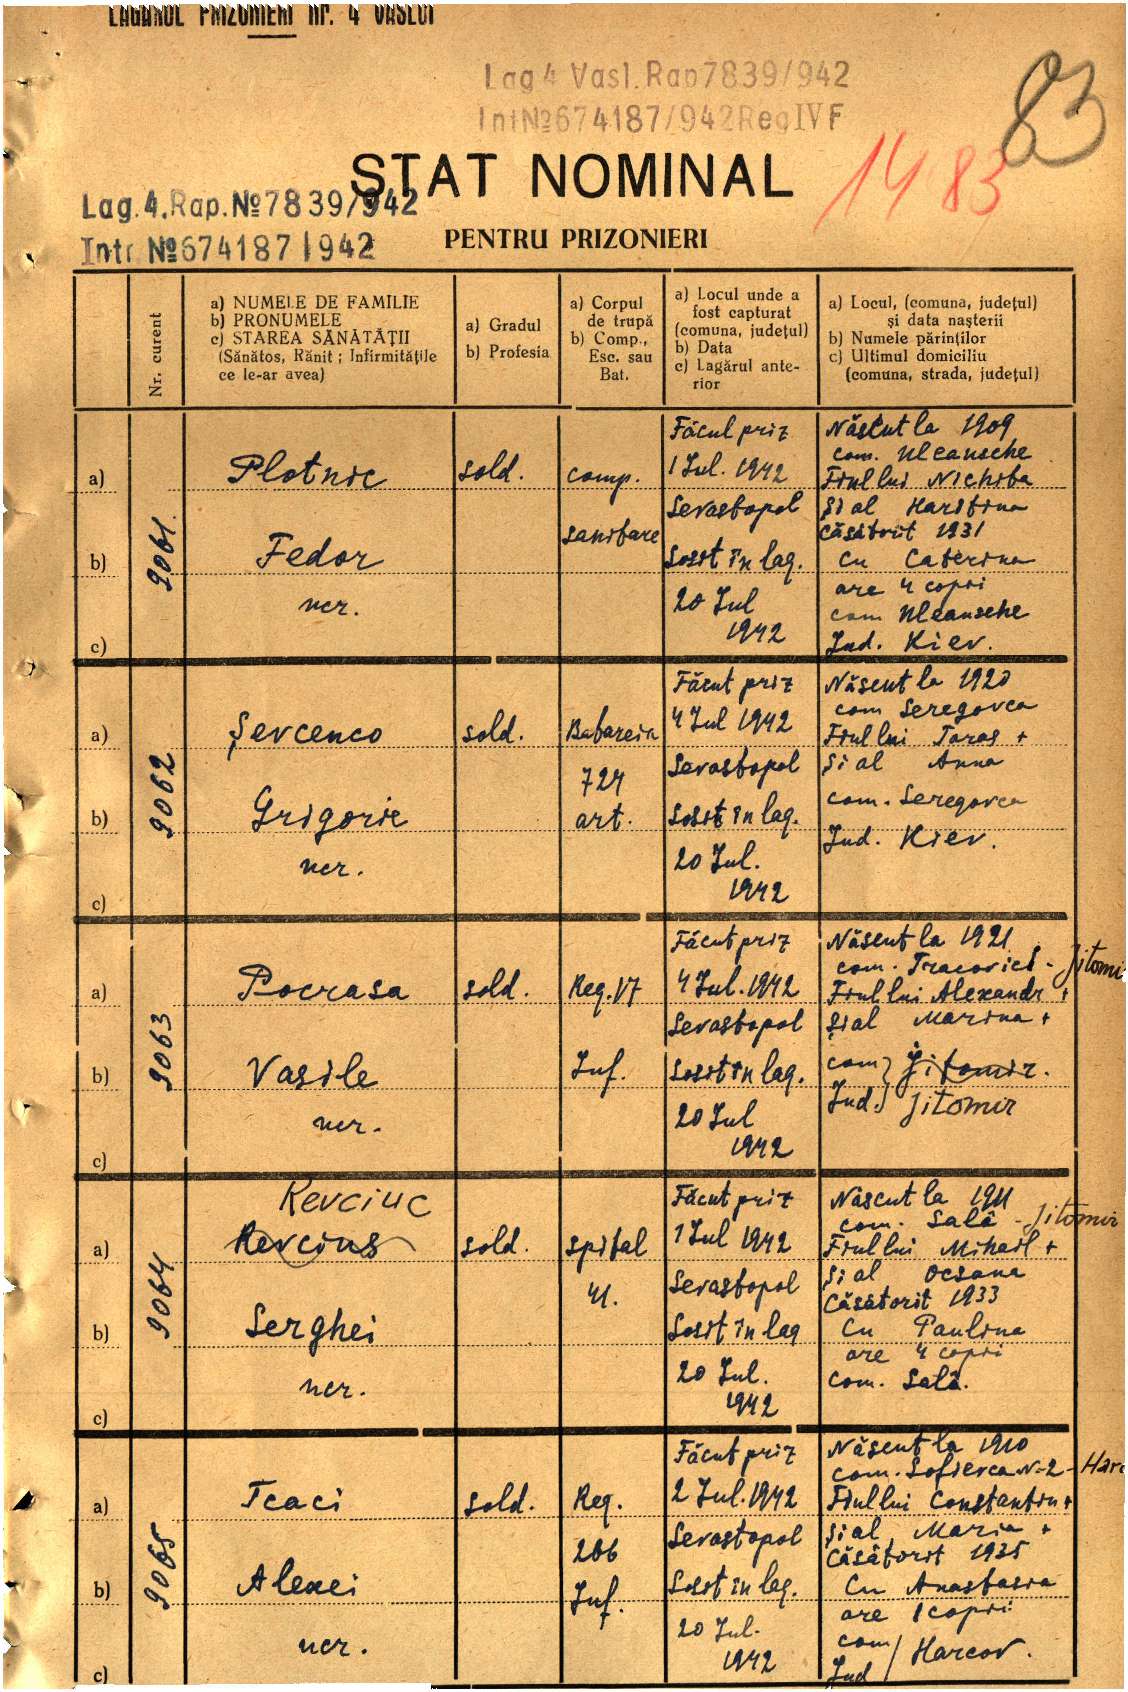 LAGĂRUL PRIZONIERI Nr. 4 VASLUI
Lag 4 Vasl. Rap 7839/942
Int № 674187/942 Reg IV F
83
14 83
STAT NOMINAL
Lag. 4. Rap. № 7839/942
Intr. № 674187/942
PENTRU PRIZONIERI
Nr. curent
a) NUMELE DE FAMILIE
b) PRONUMELE
c) STAREA SĂNĂTĂȚII
(Sănătos, Rănit ; Infirmitățile
ce le-ar avea)
a) Gradul
b) Profesia
a) Corpul
de trupă
b) Comp.,
Esc. sau
Bat.
a) Locul unde a
fost capturat
(comuna, județul)
b) Data
c) Lagărul ante-
rior
a) Locul, (comuna, județul)
și data nașterii
b) Numele părinților
c) Ultimul domiciliu
(comuna, strada, județul)
a)
b)
c)
9061.
Plotnic
Fedor
ncr.
sold.
comp.
sanitare
Făcul priz
1 Iul. 1942
Sevastopol
Sosit în lag.
20 Iul
1942
Născut la 1909
com. Uleansche
Fiul lui Nichita
Și al Haritina
Căsătorit 1931
Cu Caterina
are 4 copii
com Uleansche
Jud. Kiev.
a)
b)
c)
9062
Șevcenco
Grigorie
ncr.
sold.
Batareia
724
art.
Făcut priz
4 Iul 1942
Sevastopol
Sosit în lag.
20 Iul.
1942
Născut la 1920
com Seregovca
Fiul lui Taras +
Și al Anna
com. Seregovca
Jud. Kiev.
a)
b)
c)
9063
Pocrasa
Vasile
ncr.
sold.
Reg. 17
Inf.
Făcut priz
4 Iul. 1942
Sevastopol
Sosit în lag.
20 Iul
1942
Născut la 1921
com. - Jitomi
Fiul lui Alexandr +
Și al Marina +
com } Jitomir.
Jud. } Jitomir
a)
b)
c)
9064
Kevciuc
Kevcius
Serghei
ncr.
sold.
spital
41.
Făcut priz
1 Iul 1942
Sevastopol
Sosit în lag
20 Iul.
1942
Născut la 1911
com. Sală - Jitomir
Fiul lui Mihail +
Și al Ocsana
Căsătorit 1933
Cu Paulina
are 4 copii
com. Sală.
a)
b)
c)
9065
Tcaci
Alexei
ncr.
sold.
Reg.
266
Inf.
Făcut priz
2 Iul. 1942
Sevastopol
Sosit în lag.
20 Iul.
1942
Născut la 1910
com. Sofievca N-2 - Harc
Fiul lui Constantin +
Și al Maria +
Căsătorit 1935
Cu Anastasia
are 1 copii
com / Harcov.
Jud